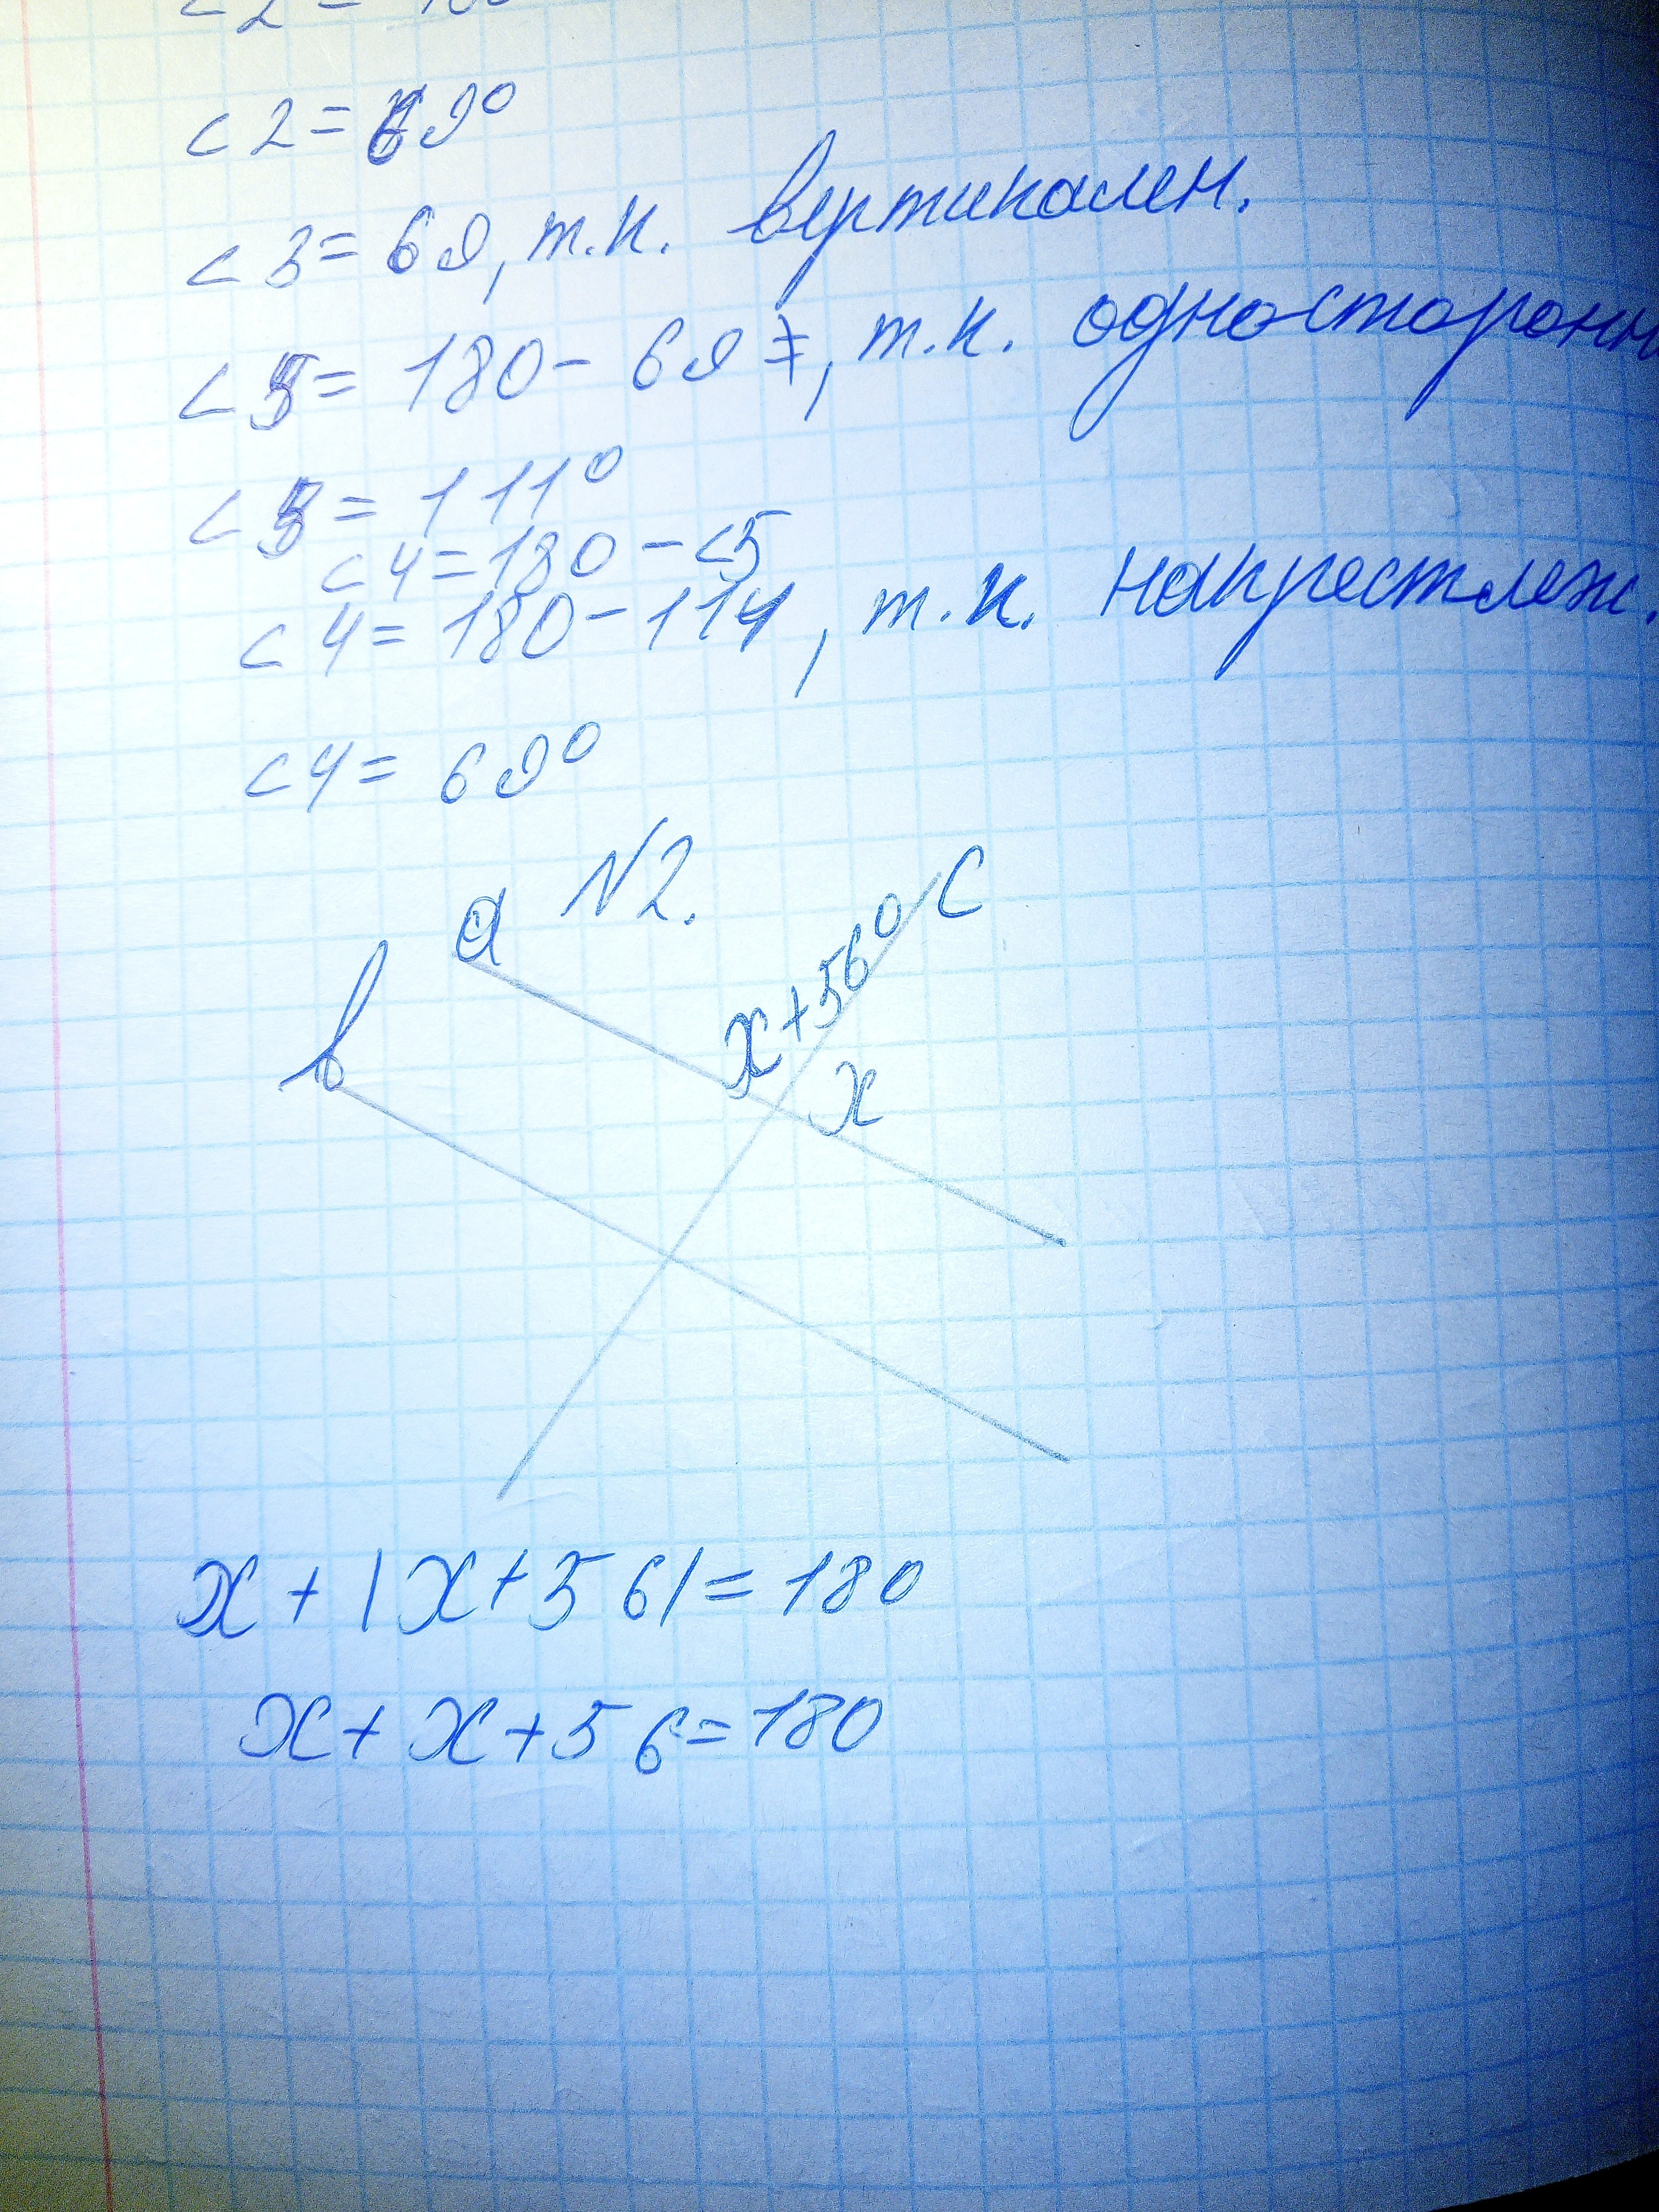 ∠2 = 69°
∠3 = 69, т.к. вертикален.
∠5 = 180 - 69 =, т.к. односторонн
∠5 = 111°
∠4 = 180 - ∠5
∠4 = 180 - 111, т.к. накрестлеж.
∠4 = 69°
N2.
a
c
b
x+56°
x
x + (x + 56) = 180
x + x + 56 = 180